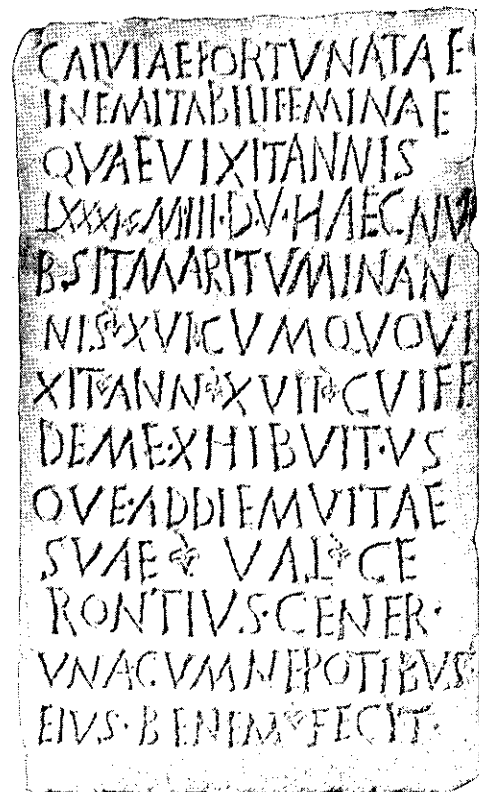 CALVIAE FORTVNATAE
INEMITABILI FEMINAE
QVAE VIXIT ANNIS
LXXXI M·IIII·D·V·HAEC NV
BSIT MARITVM IN AN
NIS XVI CVM QVO VI
XIT ANN XVII CVI FI
DEM EXHIBVIT·VS
QVE·AD DIEM VITAE
SVAE VAL CE
RONTIVS·GENER·
VNA CVM NEPOTIBVS
EIVS·BENEM FECIT·